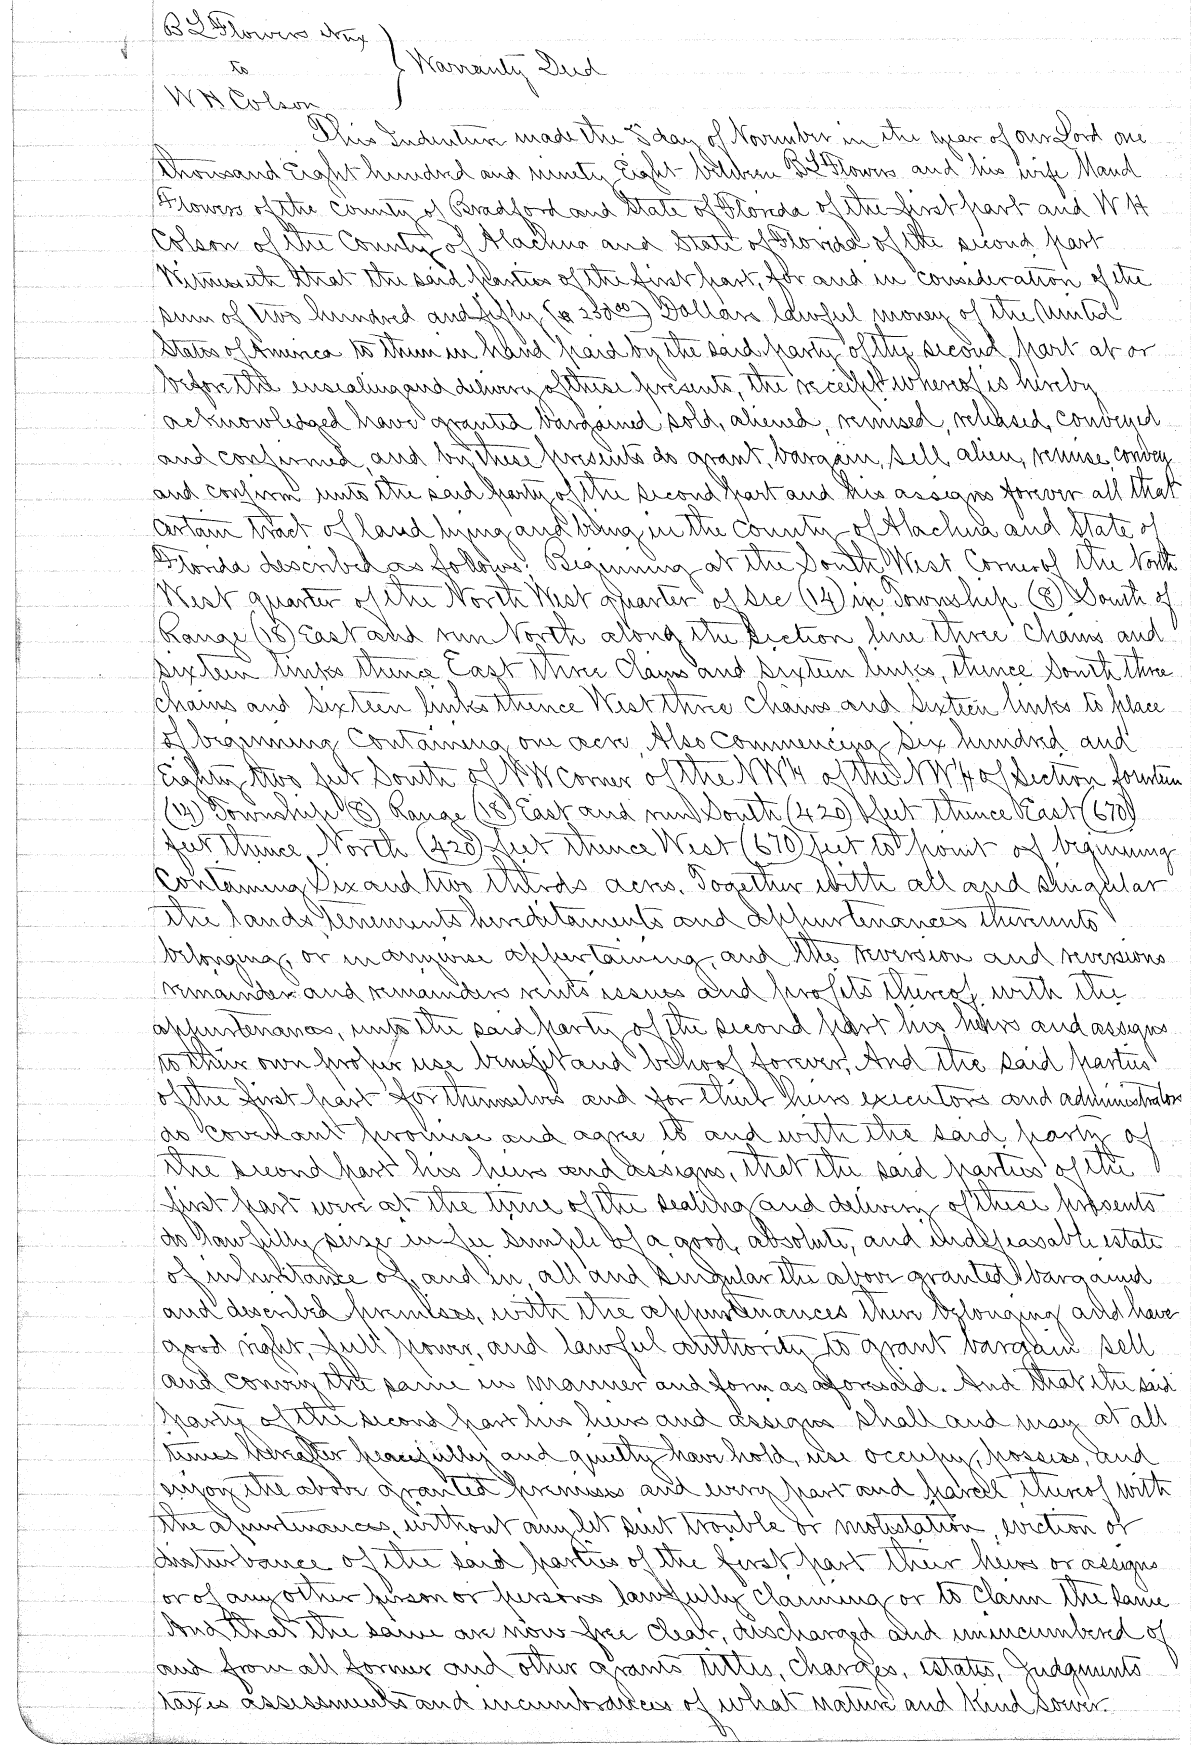 B L Flowers & ux
to
W H Colson
Warranty Deed
This Indenture made the 8 day of November in the year of our Lord one
thousand Eight hundred and ninety Eight between B L Flowers and his wife Maud
Flowers of the County of Bradford and State of Florida of the first part and W H
Colson of the County of Alachua and State of Florida of the second part
Witnesseth that the said parties of the first part, for and in consideration of the
sum of two hundred and fifty ($ 250 00) Dollars lawful money of the United
States of America to them in hand paid by the said party of the second part at or
before the ensealing and delivery of these presents, the receipt whereof is hereby
acknowledged have granted bargained sold, aliened, remised, released, conveyed
and confirmed, and by these presents do grant, bargain, sell, alien, remise, convey
and confirm unto the said party of the second part and his assigns forever all that
certain tract of land lying and being in the County of Alachua and State of
Florida described as follows: Beginning at the South West Corner of the North
West quarter of the North West quarter of Sec (14) in Township (8) South of
Range (18) East and run North along the section line three chains and
sixteen links thence East three Clains and sixteen links, thence South three
chains and sixteen links thence West three chains and sixteen links to place
of beginning Containing one acre. Also Commencing six hundred and
Eighty two feet South of NW corner of the NW 1/4 of the NW 1/4 of Section fourteen
(14) Township (8) Range (18) East and run South (420) feet thence East (670)
feet thence North (420) feet thence West (670) feet to point of beginning
Containing Six and two thirds acres. Together with all and singular
the lands tenements hereditaments and appurtenances thereunto
belonging, or in anywise appertaining, and the reversion and reversions
remainder and remainders rents issues and profits thereof, with the
appurtenances, unto the said party of the second part his heirs and assigns
to their own proper use benefit and behoof forever. And the said parties
of the first part for themselves and for their heirs executors and administrators
do covenant promise and agree to and with the said party of
the second part his heirs and assigns, that the said parties of the
first part were at the time of the sealing and delivery of these presents
do lawfully seize in fee simple of a good, absolute, and indefeasable estate
of inheritance of, and in, all and singular the above granted bargained
and described premises, with the appurtenances there belonging and have
good right, full power, and lawful authority to grant bargain sell
and convey the same in manner and form as aforesaid. And that the said
party of the second part his heirs and assigns shall and may at all
times hereafter peacefully and quietly have hold, use occupy, possess, and
enjoy the above granted premises and every part and parcel thereof with
the appurtenances, without any let suit trouble or molestation, eviction or
disturbance of the said parties of the first part their heirs or assigns
or of any other person or persons lawfully claiming or to claim the same
And that the same are now free clear, discharged and unincumbered of
and from all former and other grants titles, charges, estates, Judgments
taxes assessments and incumbrances of what nature and kind soever.